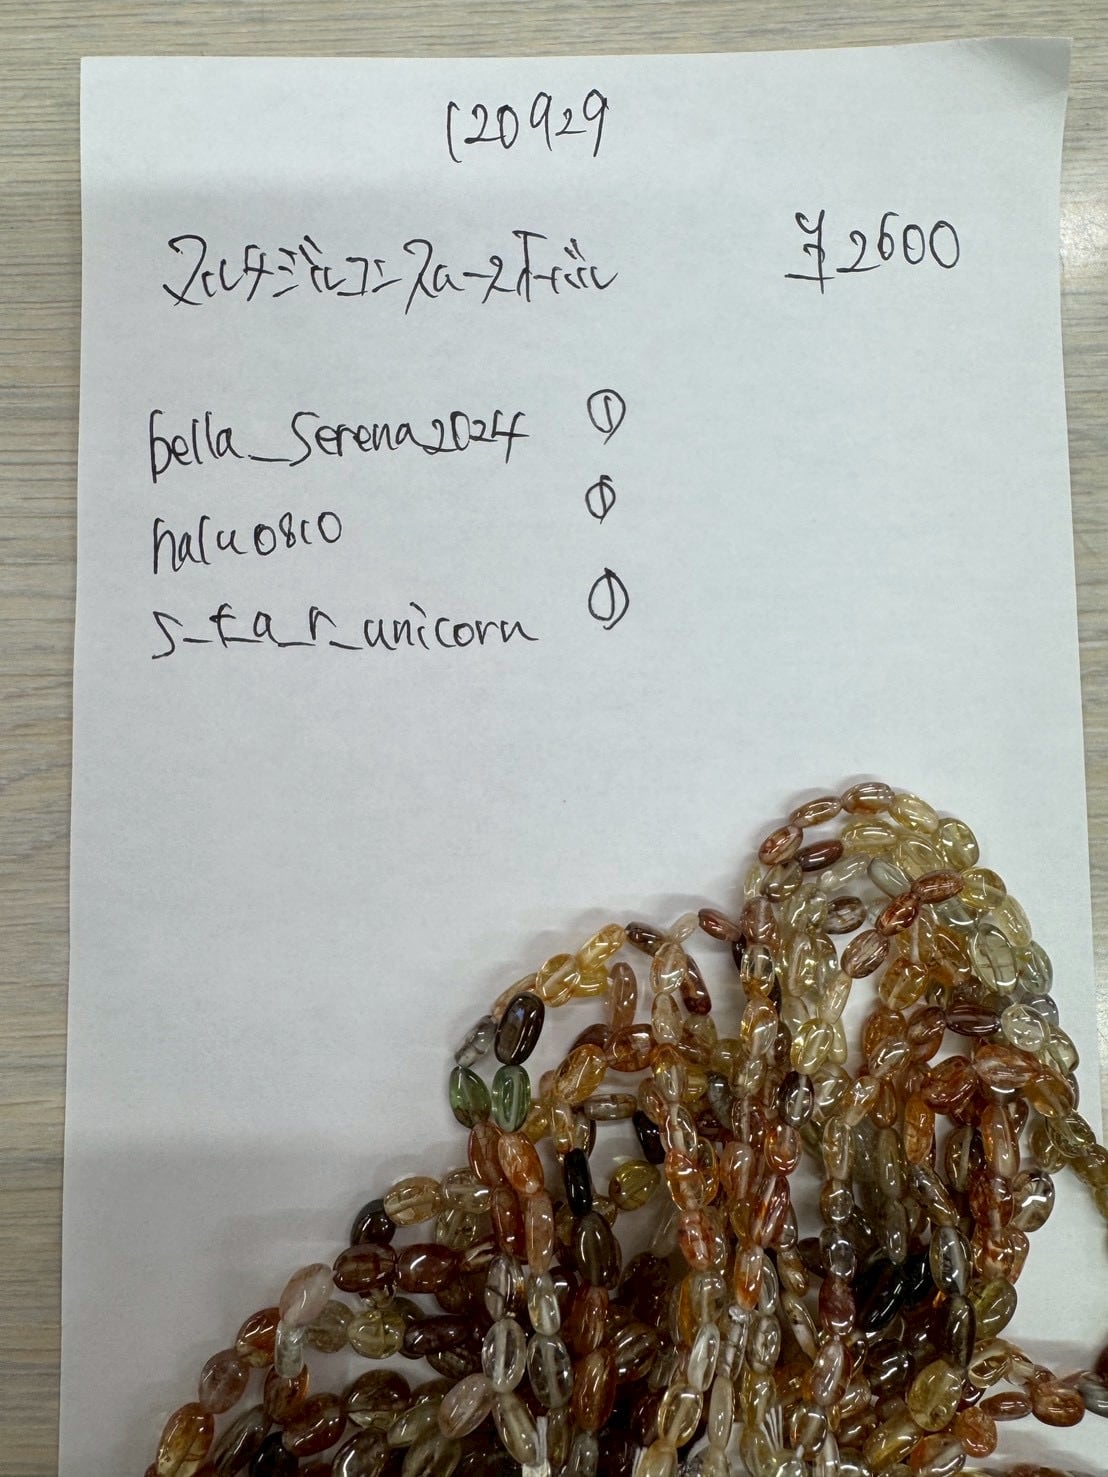 120929
マルチミラルコンスクーズオーバル
¥2600
bella_serena2024 ①
halu0810 ①
s_t_a_r_unicorn ①